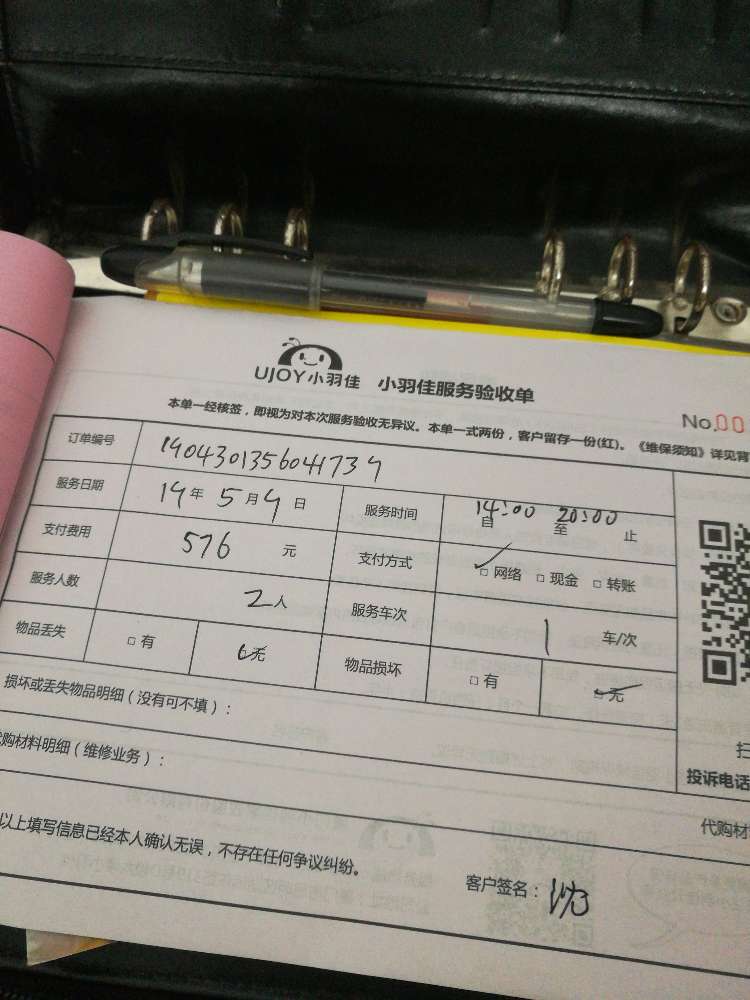 UJOY小羽佳 小羽佳服务验收单
No.00
本单一经核签，即视为对本次服务验收无异议。本单一式两份，客户留存一份(红)。《维保须知》详见背
订单编号 1904301356041739
服务日期 19年5月4日 服务时间 自14:00至20:00止
支付费用 576元 支付方式 网络 现金 转账
服务人数 2人 服务车次 1车/次
物品丢失 有 无 物品损坏 有 无
损坏或丢失物品明细（没有可不填）：
购材料明细（维修业务）：
投诉电话
代购材
以上填写信息已经本人确认无误，不存在任何争议纠纷。
客户签名：